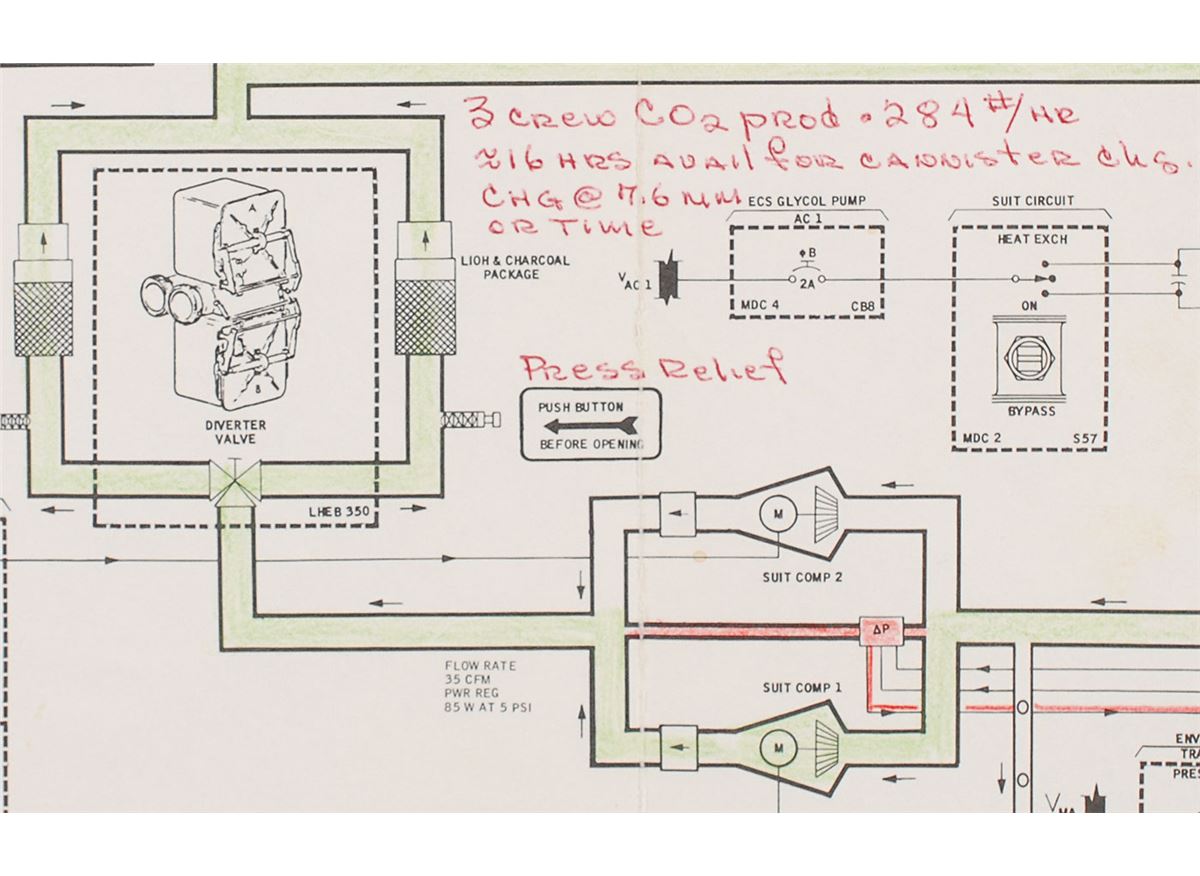 3 CREW CO2 PROD .284 #/HR
≈16 HRS AVAIL FOR CANNISTER CHG.
CHG @ 7.6 MM
OR TIME
ECS GLYCOL PUMP
AC 1
SUIT CIRCUIT
HEAT EXCH
A
LIOH & CHARCOAL
PACKAGE
V AC 1
ΦB
2A
MDC 4
CB8
ON
BYPASS
MDC 2
S57
PRESS RELIEF
PUSH BUTTON
BEFORE OPENING
B
DIVERTER
VALVE
LHEB 350
M
SUIT COMP 2
ΔP
FLOW RATE
35 CFM
PWR REG
85 W AT 5 PSI
SUIT COMP 1
M
ENV
TRA
PRES
V MA